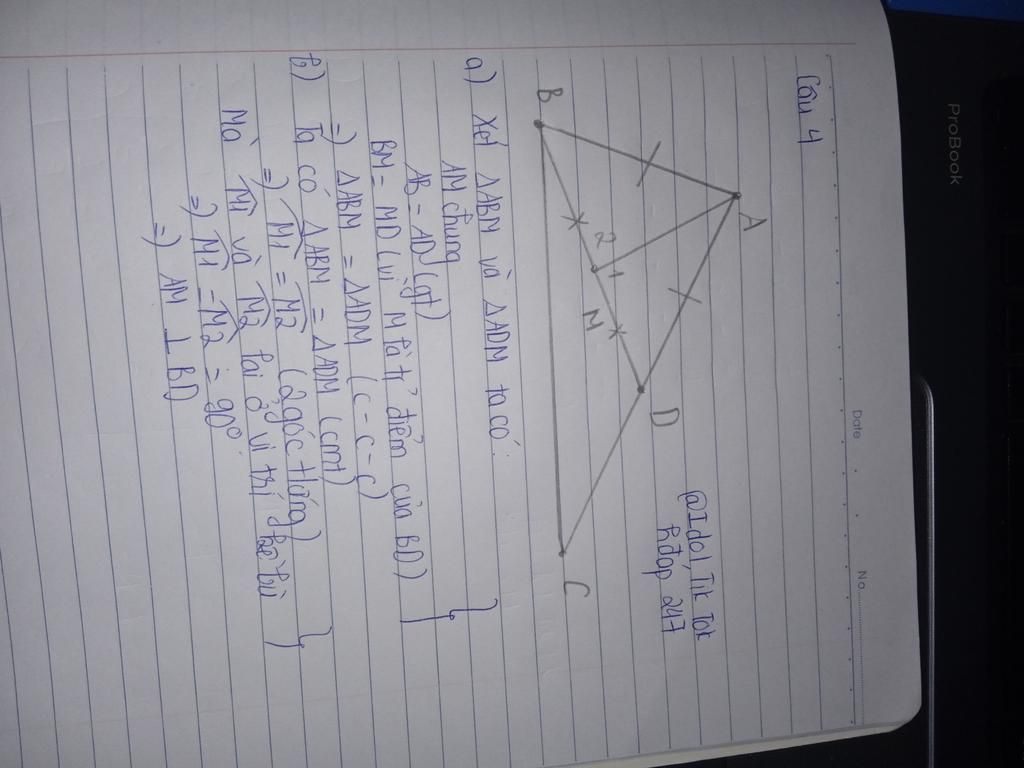 ProBook
Date
No.
Câu 4
A
B
D
C
M
2
1
@Idol Tik Tok
hđáp 247
a) Xét ΔABM và ΔADM ta có:
AM chung
AB = AD (gt)
BM = MD (vì M là tr² điểm của BD)
=) ΔABM = ΔADM (c-c-c)
b) Ta có ΔABM = ΔADM (cmt)
=) M1 = M2 (2 góc tứng)
Mà M1 và M2 lại ở vị trí bù
=) M1 = M2 = 90°
=) AM ⊥ BD